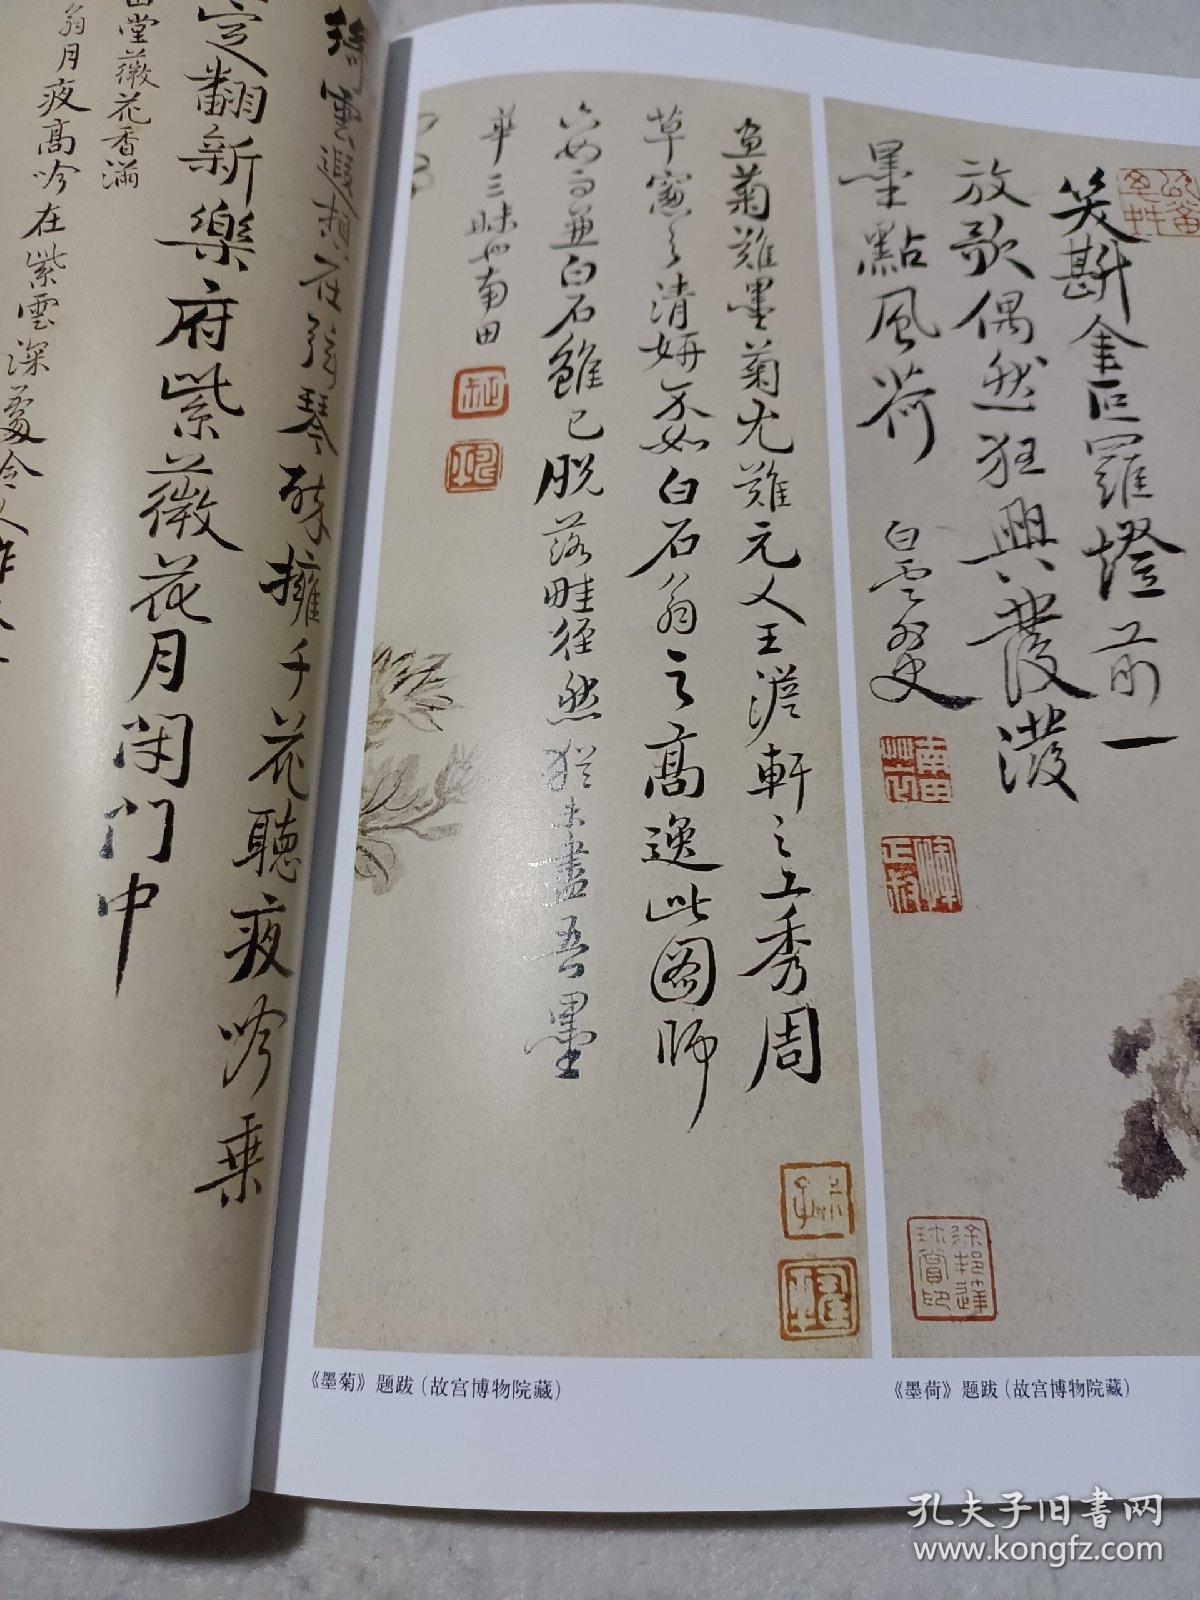 笑斟金叵羅燈前一
放歌偶然狂興發潑
墨點風荷
白雲溪叟
畫菊難墨菊尤難元人王澹軒之工秀周
草窻之清妍不如白石翁之高逸此圖師
白石雖已脫落畦徑然猶未盡吾墨
華三昧也南田
綺雲遐想在瑤琴
擁千花聽夜吟乗
定翻新樂府紫薇花月閉門中
堂薇花香滿
翁月夜高吟在紫雲深處令人
徐邦達珍賞印
《墨菊》题跋（故宫博物院藏）
《墨荷》题跋（故宫博物院藏）
孔夫子旧书网
www.kongfz.com